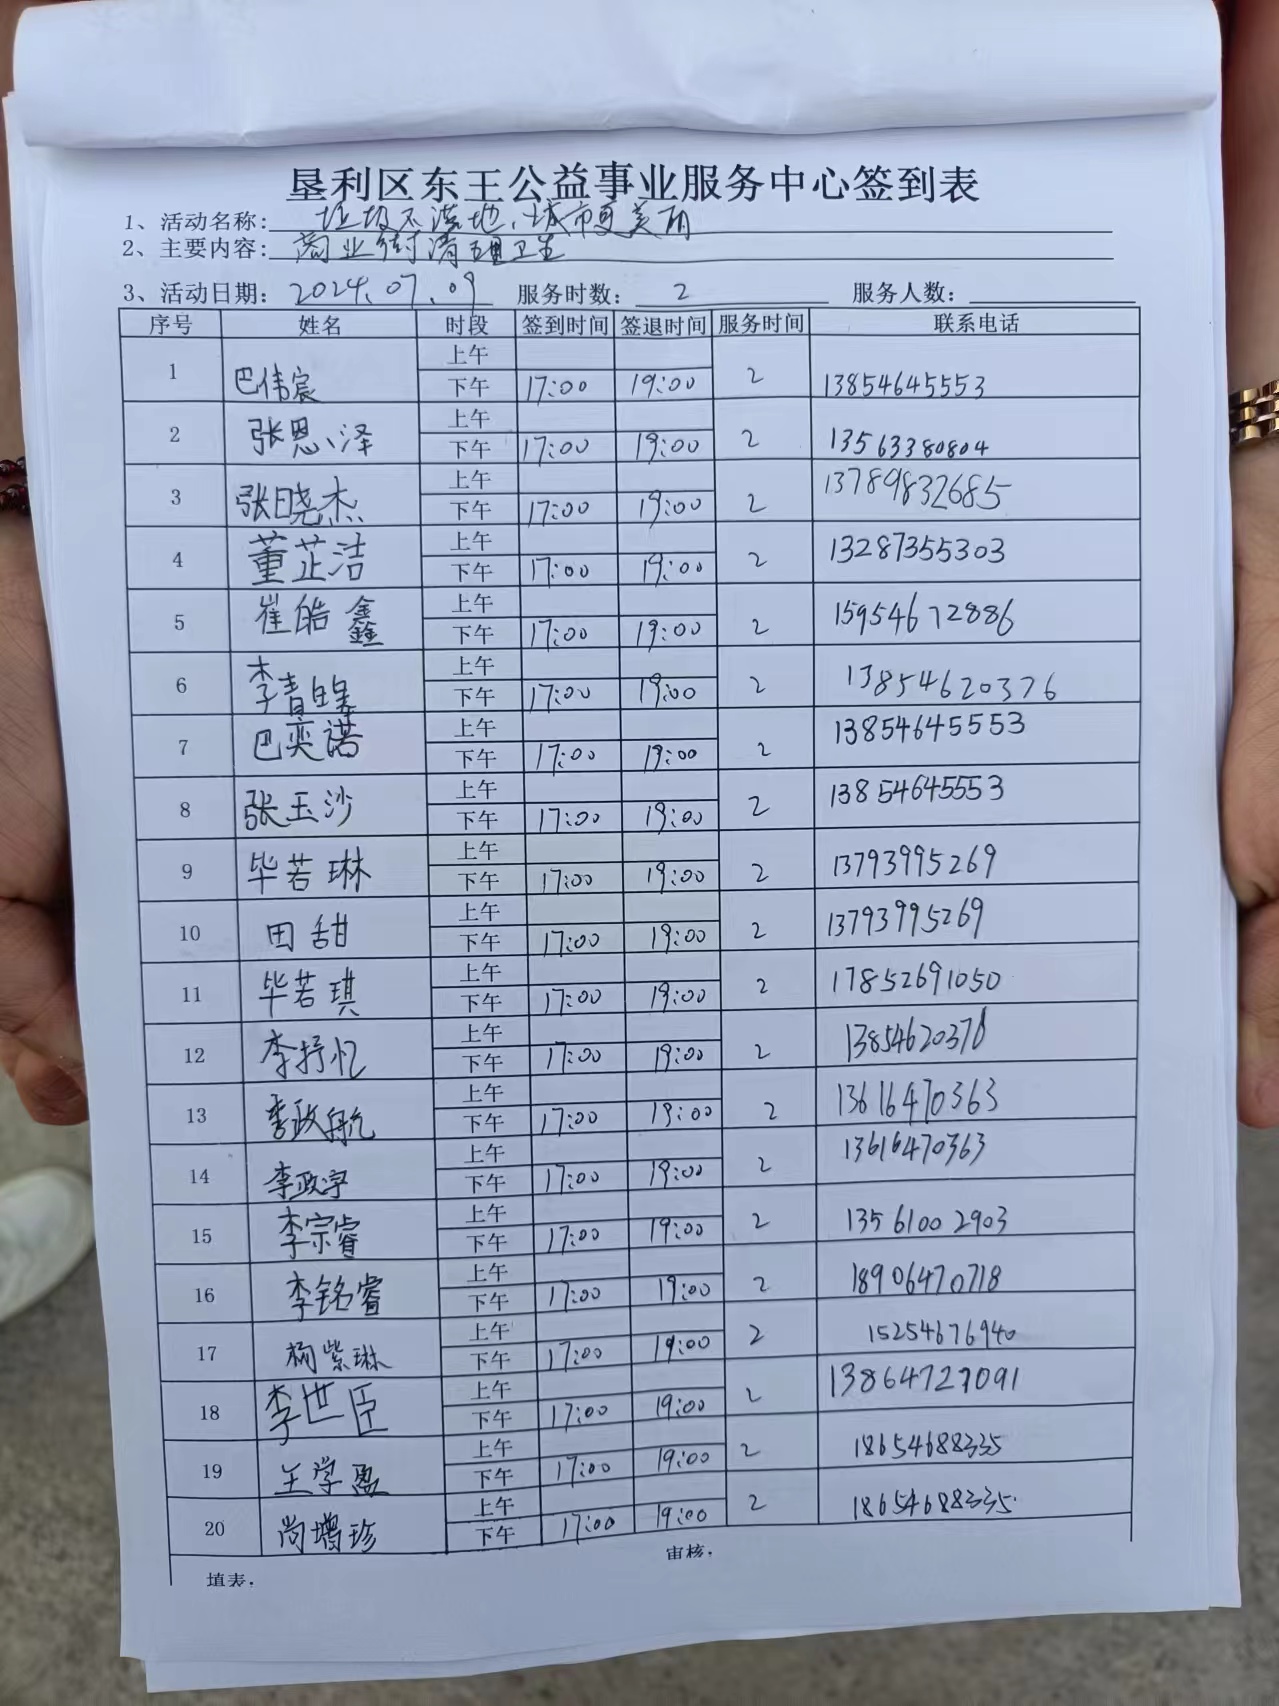 垦利区东王公益事业服务中心签到表
1、活动名称: 垃圾不落地、城市更美丽
2、主要内容: 商业街清理卫生
3、活动日期: 2024.07.09 服务时数: 2 服务人数:
序号 姓名 时段 签到时间 签退时间 服务时间 联系电话
1 巴伟宸 上午 下午 17:00 19:00 2 13854645553
2 张恩泽 上午 下午 17:00 19:00 2 13563380804
3 张晓杰 上午 下午 17:00 19:00 2 13789832685
4 董芷洁 上午 下午 17:00 19:00 2 13287355303
5 崔皓鑫 上午 下午 17:00 19:00 2 15954672886
6 李青 上午 下午 17:00 19:00 2 13854620376
7 巴奕诺 上午 下午 17:00 19:00 2 13854645553
8 张玉沙 上午 下午 17:00 19:00 2 13854645553
9 毕若琳 上午 下午 17:00 19:00 2 13793995269
10 田甜 上午 下午 17:00 19:00 2 13793995269
11 毕若琪 上午 下午 17:00 19:00 2 17852691050
12 李抒忆 上午 下午 17:00 19:00 2 13854620376
13 李政航 上午 下午 17:00 19:00 2 13616470363
14 李政宇 上午 下午 17:00 19:00 2 13616470363
15 李宗睿 上午 下午 17:00 19:00 2 13561002903
16 李铭睿 上午 下午 17:00 19:00 2 18906470718
17 杨紫琳 上午 下午 17:00 19:00 2 15254676940
18 李世臣 上午 下午 17:00 19:00 2 13864727091
19 王学盈 上午 下午 17:00 19:00 2 18654688335
20 尚增珍 上午 下午 17:00 19:00 2 18654688335
填表: 审核: